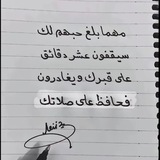 مهما بلغ حبهم لك
سيقفون عشر دقائق
على قبرك ويغادرون
فحافظ على صلاتك